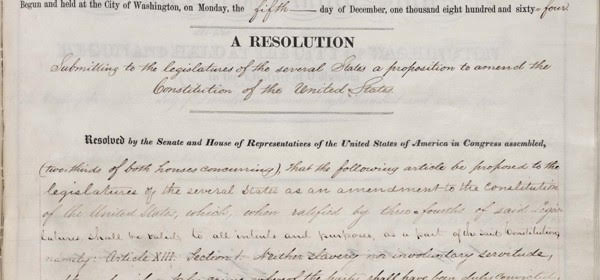 Begun and held at the City of Washington, on Monday, the fifth day of December, one thousand eight hundred and sixty-four
A RESOLUTION
Submitting to the legislatures of the several States a proposition to amend the
Constitution of the United States.
Resolved by the Senate and House of Representatives of the United States of America in Congress assembled,
(two-thirds of both houses concurring), That the following article be proposed to the
legislatures of the several States as an amendment to the Constitution
of the United States, which, when ratified by three-fourths of said Legis-
latures shall be valid, to all intents and purposes, as a part of the said Constitution,
namely: Article XIII. Section 1. Neither slavery nor involuntary servitude,
shall have been duly convicted,